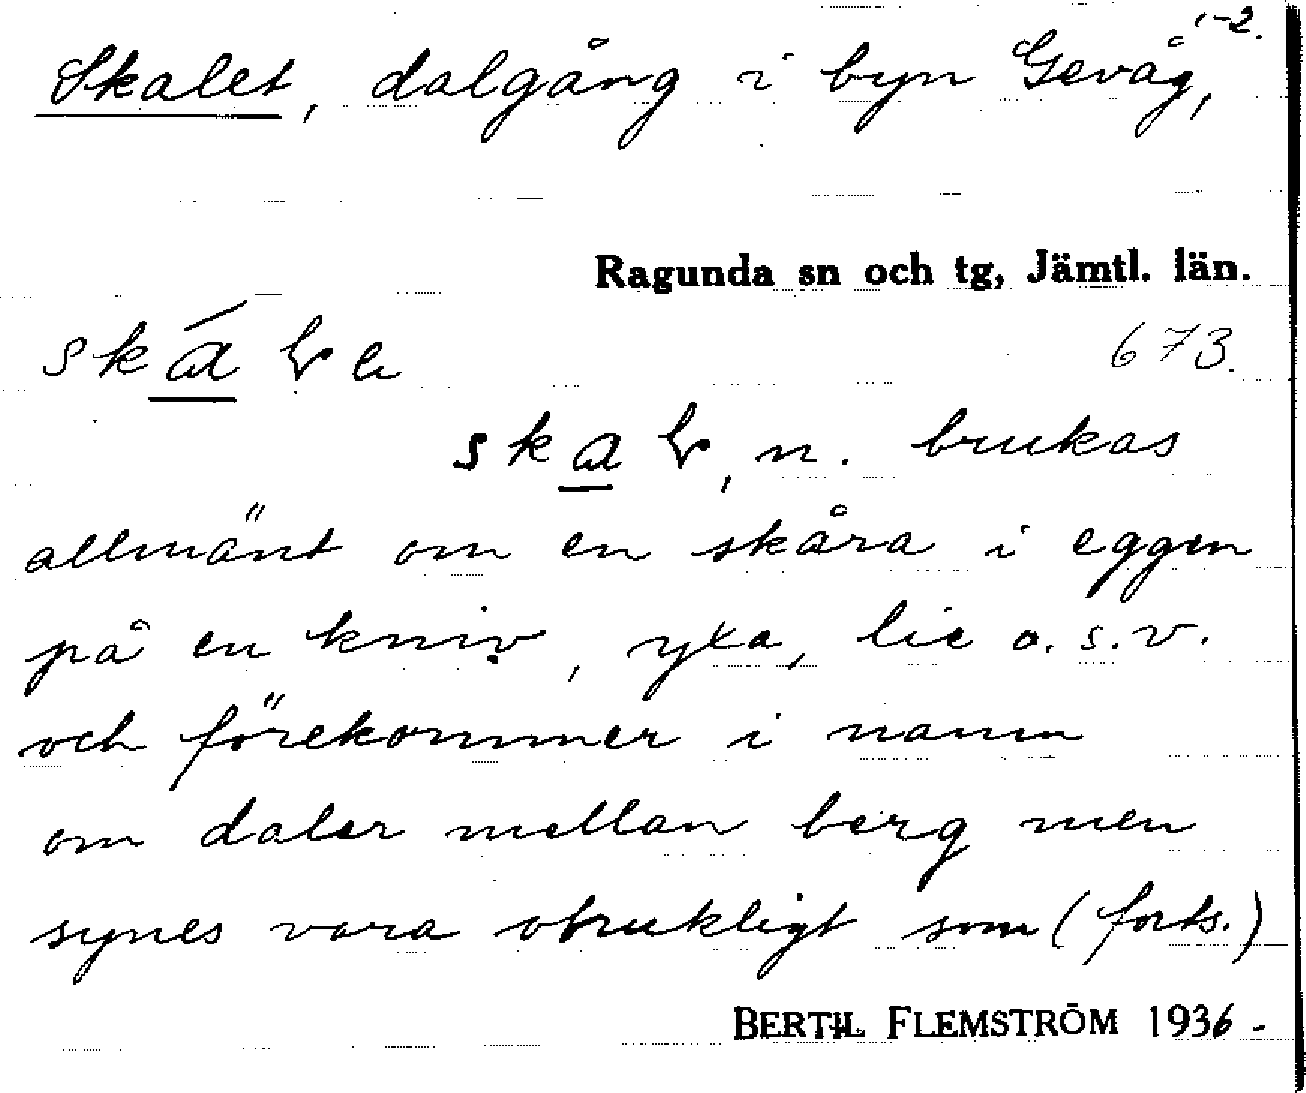 1-2.
Skalet, dalgång i byn Gevåg,
Ragunda sn och tg, Jämtl. län.
673.
n. brukas
allmänt om en skåra i eggen
på en kniv, yxa, lie o.s.v.
och förekommer i namn
om daler mellan berg men
synes vara obrukligt som (forts.)
BERTIL FLEMSTRÖM 1936-